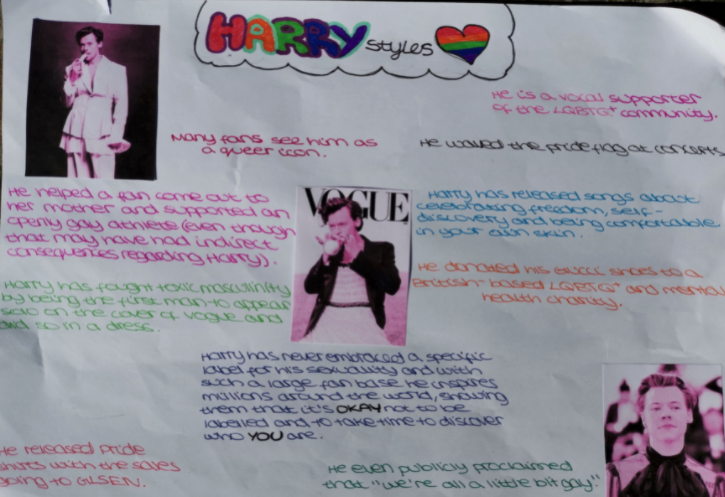 HARRY styles
He is a vocal supporter
of the LGBTG+ community.
Many fans see him as
a queer icon.
He waved the pride flag at concerts
He helped a fan come out to
her mother and supported an
openly gay athlete (even though
that may have had indirect
consequences regarding Harry).
VOGUE
Harry has released songs about
celebrating freedom, self-
discovery and being comfortable
in your own skin.
Harry has fought toxic masculinity
by being the first man to appear
solo on the cover of Vogue and
did so in a dress.
He donated his Gucci shoes to a
British-based LGBTG+ and mental
health charity.
Harry has never embraced a specific
label for his sexuality and with
such a large fan base he inspires
millions around the world, showing
them that it's OKAY not to be
labelled and to take time to discover
who YOU are.
He released Pride
shirts with the sales
going to GLSEN.
He even publicly proclaimed
that "we're all a little bit gay."